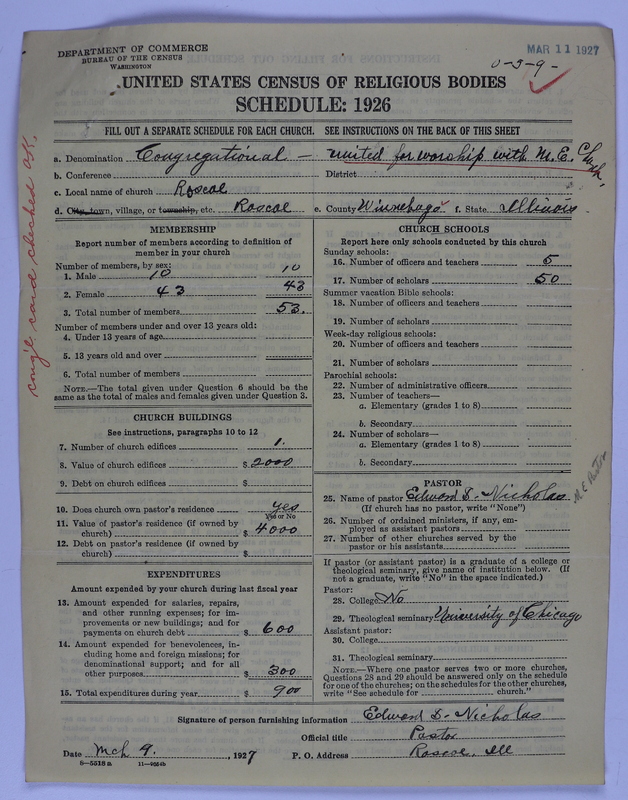 DEPARTMENT OF COMMERCE
BUREAU OF THE CENSUS
WASHINGTON
MAR 11 1927
0-3-9-
UNITED STATES CENSUS OF RELIGIOUS BODIES
SCHEDULE: 1926
FILL OUT A SEPARATE SCHEDULE FOR EACH CHURCH. SEE INSTRUCTIONS ON THE BACK OF THIS SHEET
a. Denomination Congregational — united for worship with M.E. Church.
b. Conference District
c. Local name of church Roscoe
d. City, town, village, or township, etc. Roscoe e. County Winnebago f. State Illinois
MEMBERSHIP
Report number of members according to definition of
member in your church
Number of members, by sex:
1. Male 10 10
2. Female 43 43
3. Total number of members 53.
Number of members under and over 13 years old:
4. Under 13 years of age
5. 13 years old and over
6. Total number of members
NOTE.—The total given under Question 6 should be the
same as the total of males and females given under Question 3.
CHURCH BUILDINGS
See instructions, paragraphs 10 to 12
7. Number of church edifices 1.
8. Value of church edifices $ 2000
9. Debt on church edifices $
10. Does church own pastor's residence yes
Yes or No
11. Value of pastor's residence (if owned by
church) $ 4000
12. Debt on pastor's residence (if owned by
church) $
EXPENDITURES
Amount expended by your church during last fiscal year
13. Amount expended for salaries, repairs,
and other running expenses; for im-
provements or new buildings; and for
payments on church debt $ 600
14. Amount expended for benevolences, in-
cluding home and foreign missions; for
denominational support; and for all
other purposes $ 300
15. Total expenditures during year $ 900
CHURCH SCHOOLS
Report here only schools conducted by this church
Sunday schools:
16. Number of officers and teachers 5
17. Number of scholars 50
Summer vacation Bible schools:
18. Number of officers and teachers
19. Number of scholars
Week-day religious schools:
20. Number of officers and teachers
21. Number of scholars
Parochial schools:
22. Number of administrative officers
23. Number of teachers—
a. Elementary (grades 1 to 8)
b. Secondary
24. Number of scholars—
a. Elementary (grades 1 to 8)
b. Secondary
PASTOR
25. Name of pastor Edward D. Nicholas
(If church has no pastor, write "None")
M E Pastor
26. Number of ordained ministers, if any, em-
ployed as assistant pastors
27. Number of other churches served by the
pastor or his assistants
If pastor (or assistant pastor) is a graduate of a college or
theological seminary, give name of institution below. (If
not a graduate, write "No" in the space indicated.)
Pastor:
28. College No
29. Theological seminary University of Chicago
Assistant pastor:
30. College
31. Theological seminary
NOTE.—Where one pastor serves two or more churches,
Questions 28 and 29 should be answered only on the schedule
for one of the churches; on the schedules for the other churches,
write "See schedule for church."
Signature of person furnishing information Edward D. Nicholas
Official title Pastor
Date Mch 9, 1927 P. O. Address Roscoe, Ill
8—5518 a
card checked OK.